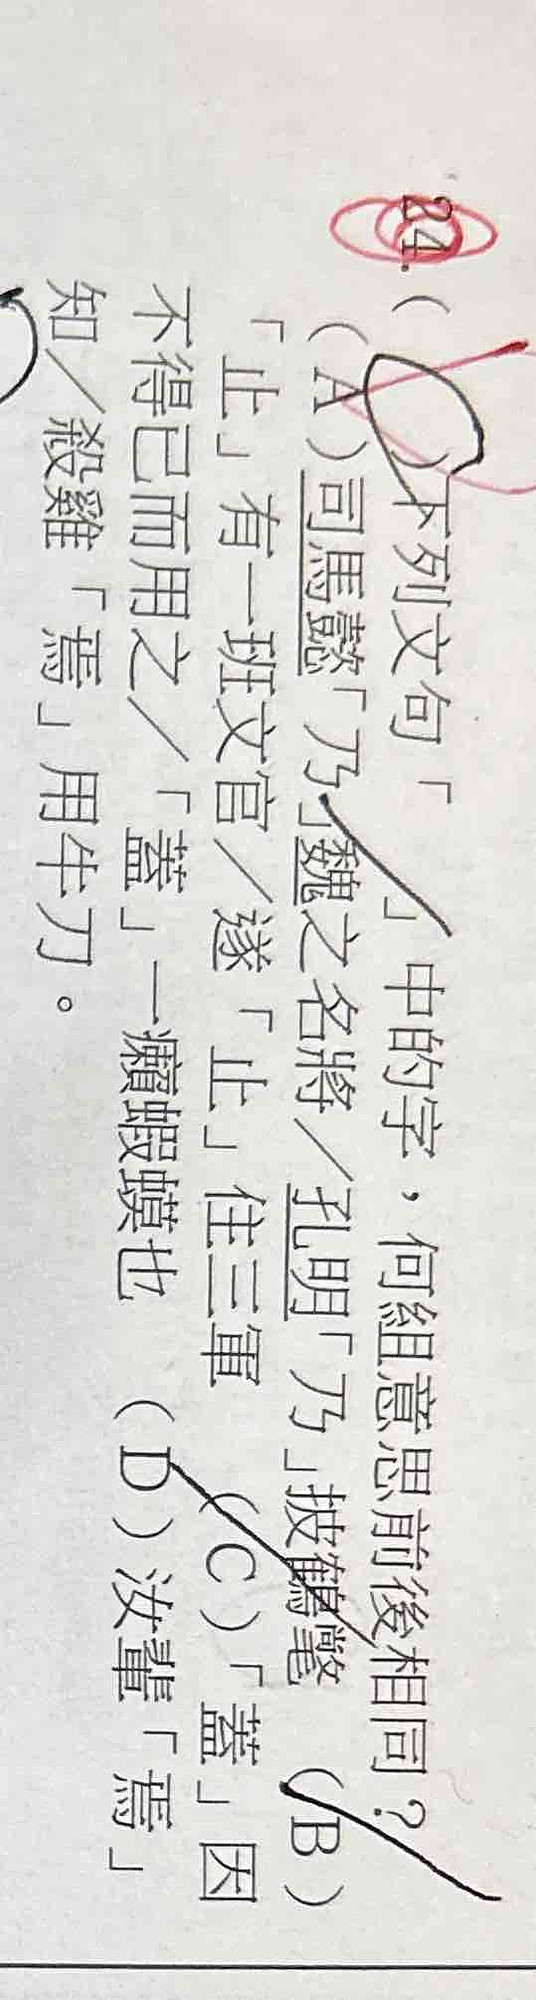 24.(　)下列文句「　」中的字，何組意思前後相同？
(A)司馬懿「乃」魏之名將／孔明「乃」披鶴氅　(B)
「止」有一班文官／遂「止」住三軍　(C)「蓋」因
不得已而用之／「蓋」一癩蝦蟆也　(D)汝輩「焉」
知／殺雞「焉」用牛刀。